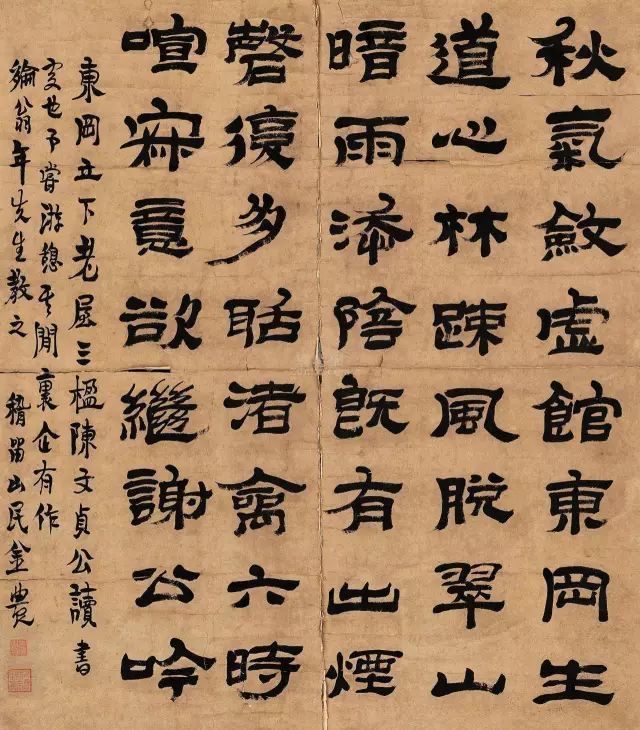 秋氣斂虛館東岡生
道心林疎風脫翠山
暗雨添陰既有出煙
磬復多聒渚禽六時
喧寂意欲繼謝公吟
東岡之下老屋三楹陳文貞公讀書
處也予嘗游憩其間企有作
綸翁年先生教之 稽留山民金農